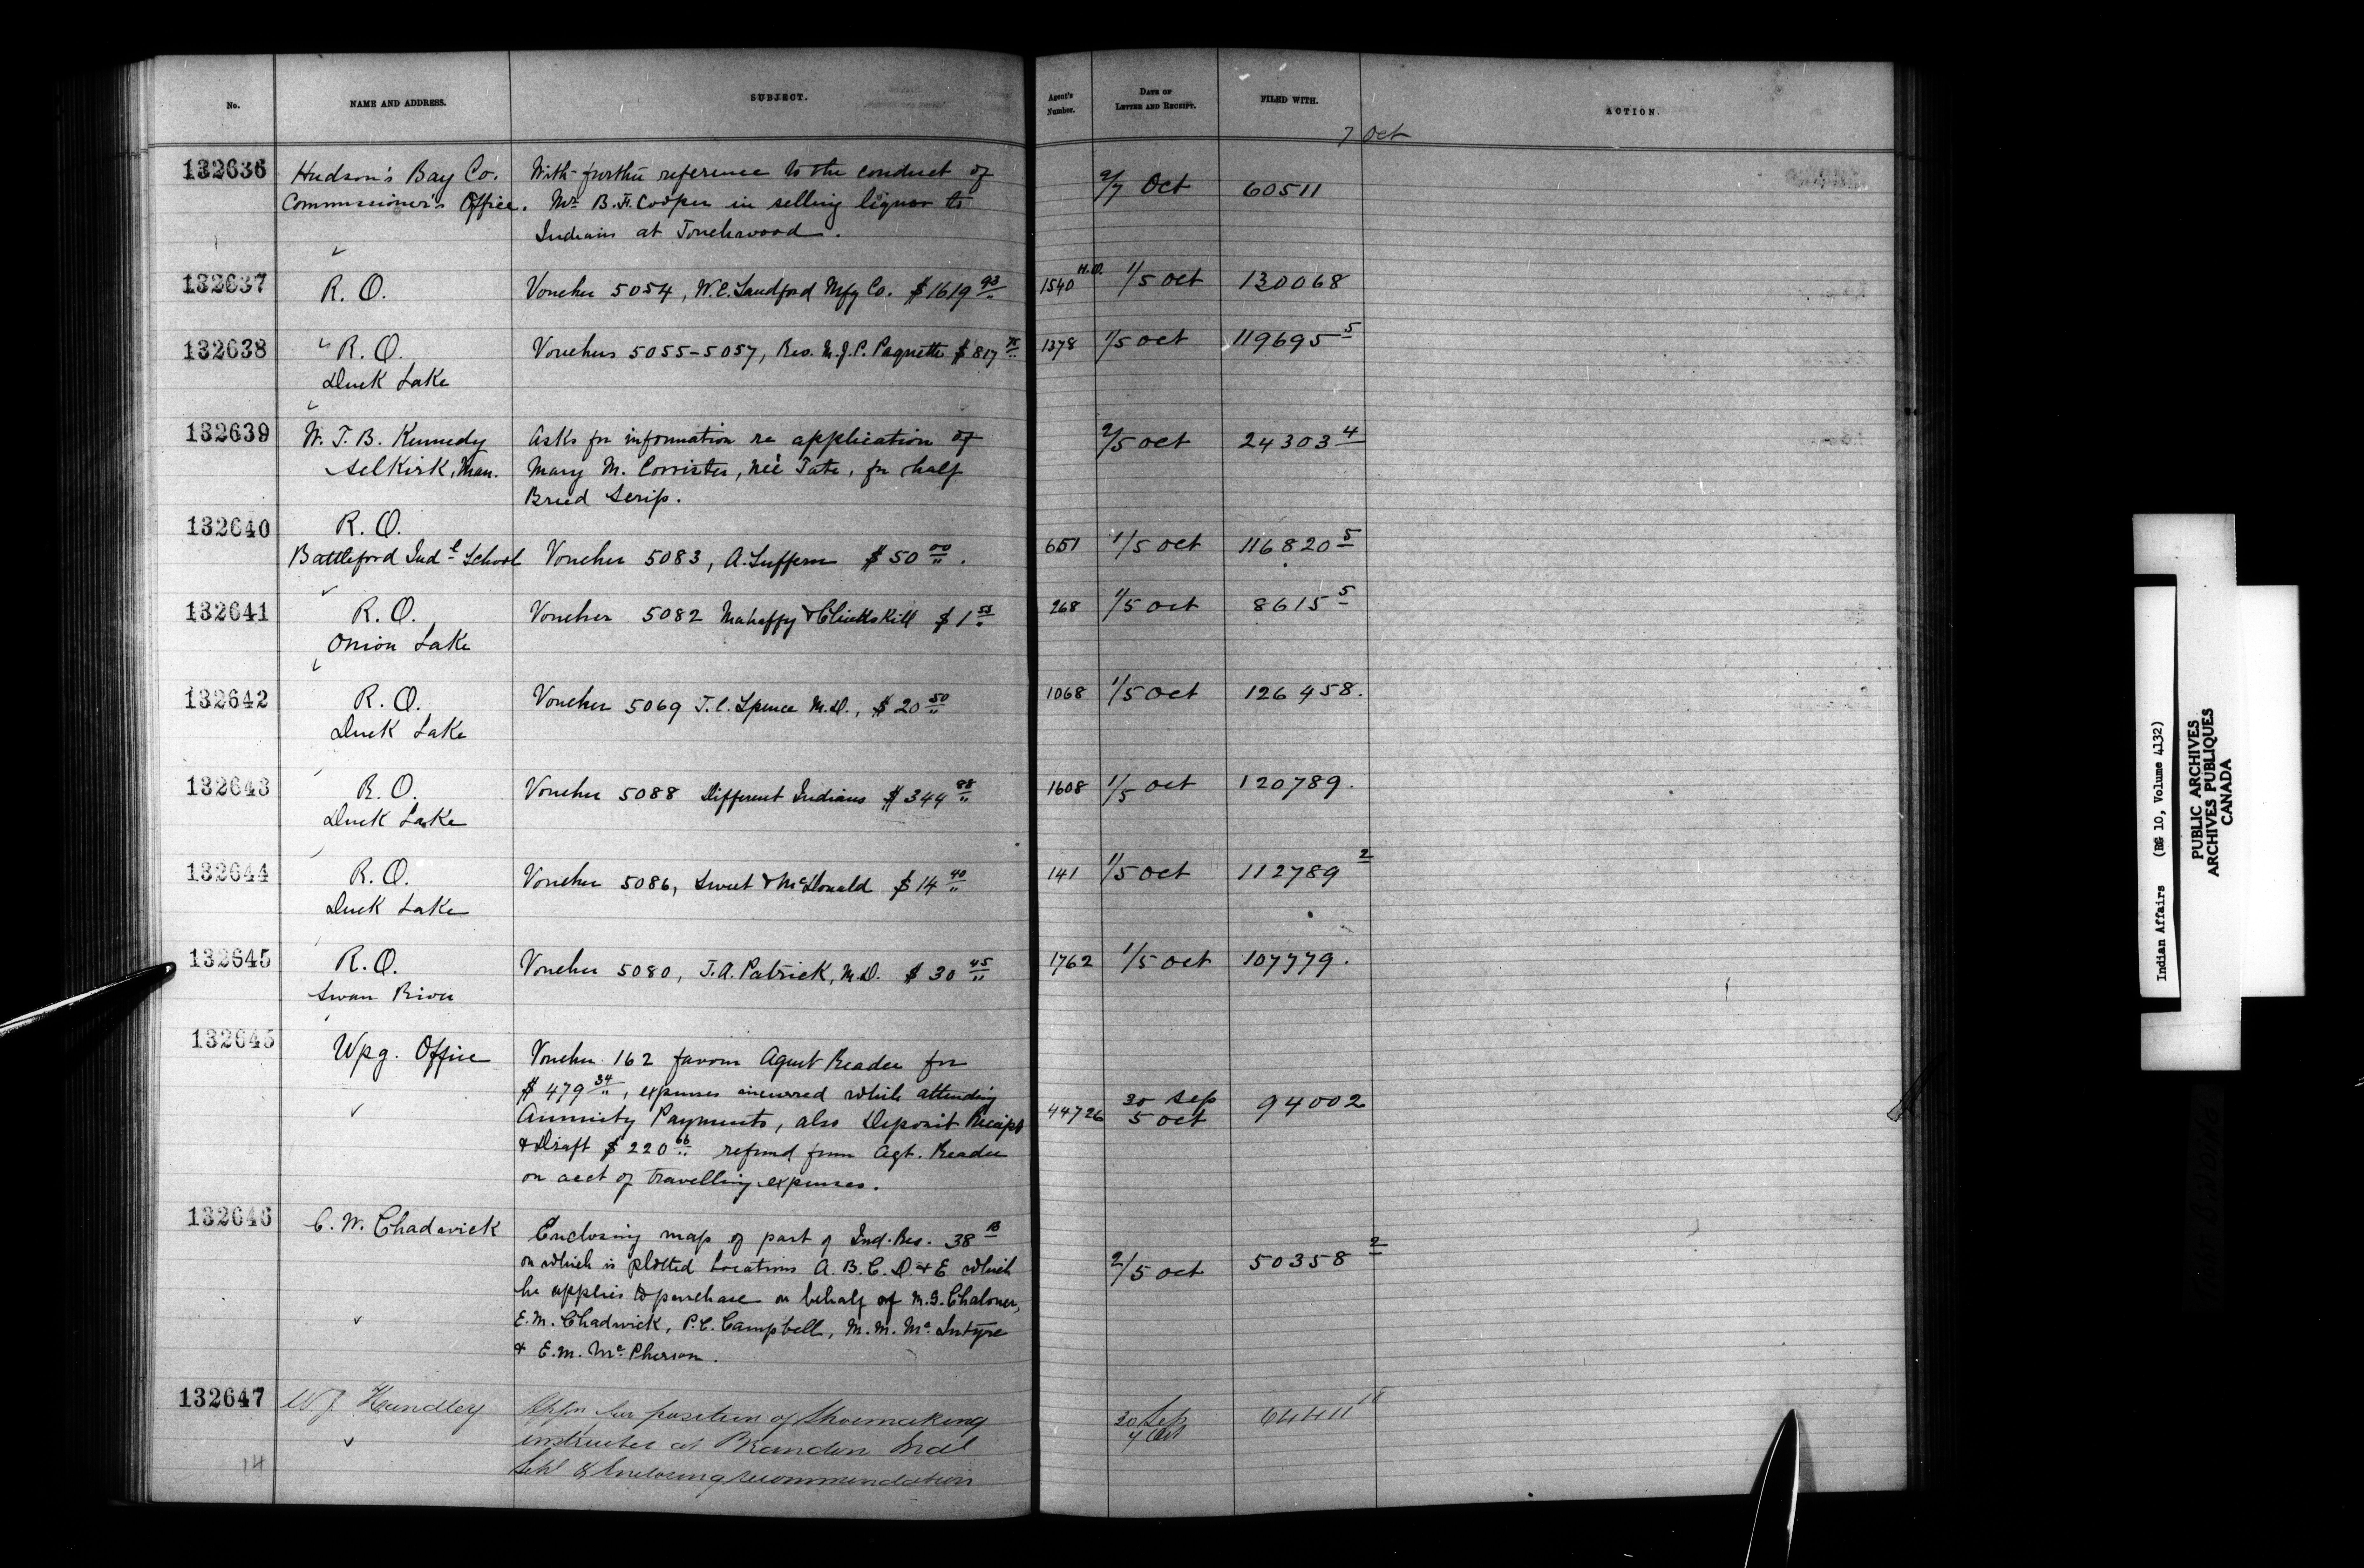 No. NAME AND ADDRESS. SUBJECT. Agent's Number. DATE OF LETTER AND RECEIPT. FILED WITH. ACTION.
7 Oct
132636 Hudson's Bay Co. With further reference to the conduct of
Commissioner's Office. Mr. B. H. Cooper in selling liquor to 2/7 Oct 60511
Indians at Touchwood.
132637 R. O. Voucher 5054, W. E. Sandford Mfg Co. $1619 93 1540 H.O. 1/5 Oct 130068
132638 R. O. Vouchers 5055-5057, Rev. M. J. P. Paquette $817 75 1378 1/5 Oct 119695 5
Duck Lake
132639 W. T. B. Kennedy Asks for information re application of 2/5 Oct 24303 4
Selkirk, Man. Mary M. Corrister, neé Tate, for half
Breed Scrip.
132640 R. O.
Battleford Ind l School Voucher 5083, A. Suffern $50 00. 651 1/5 Oct 116820 5
132641 R. O. Voucher 5082 Mahaffy & Clinkskill $1 53 268 1/5 Oct 8615 5
Onion Lake
132642 R. O. Voucher 5069 T. C. Spence M.D., $20 50 1068 1/5 Oct 126458.
Duck Lake
132643 R. O. Voucher 5088 Different Indians $344 88 1608 1/5 Oct 120789.
Duck Lake
132644 R. O. Voucher 5086, Sweet & McDonald $14 40 141 1/5 Oct 112789 2
Duck Lake
132645 R. O. Voucher 5080, T. A. Patrick, M.D. $30 45 1762 1/5 Oct 107779.
Swan River
132645 Wpg. Office Voucher 162 favour Agent Reader for
$479 34, expenses incurred while attending
Annuity Payments, also Deposit Receipt 44726 30 Sep 5 Oct 94002
& Draft $220 66 refund from Agt. Reader
on acct of travelling expenses.
132646 C. W. Chadwick Enclosing map of part of Ind. Res. 38 B
on which is plotted Locations A. B. C. D. & E which 2/5 Oct 50358 2
he applies to purchase on behalf of M. G. Chaloner,
E. M. Chadwick, P. C. Campbell, M. M. McIntyre
& E. M. McPherson.
132647 W J Handley Appn for position of Shoemaking 30 Sep 64411 11
instructor at Brandon Indl 4 Oct
14 Schl & Enclosing recommendation
Indian Affairs (RG 10, Volume 4132)
PUBLIC ARCHIVES
ARCHIVES PUBLIQUES
CANADA